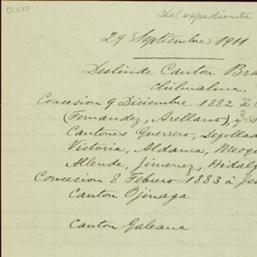 Del expediente
29 Septiembre 1911
Deslinde Canton Bra
Concesion 9 Diciembre 1882 á
(Fernandez, Arellano) y
Cantones Guerrero, Degollad
Victoria, Aldama, Meoqu
Allende, Jimenez, Hidalg
Concesion 8 Febrero 1883 á Je
Canton Ojinaga
Canton Galeana